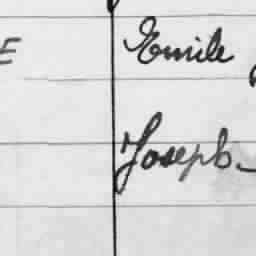 E Emile
Joseph